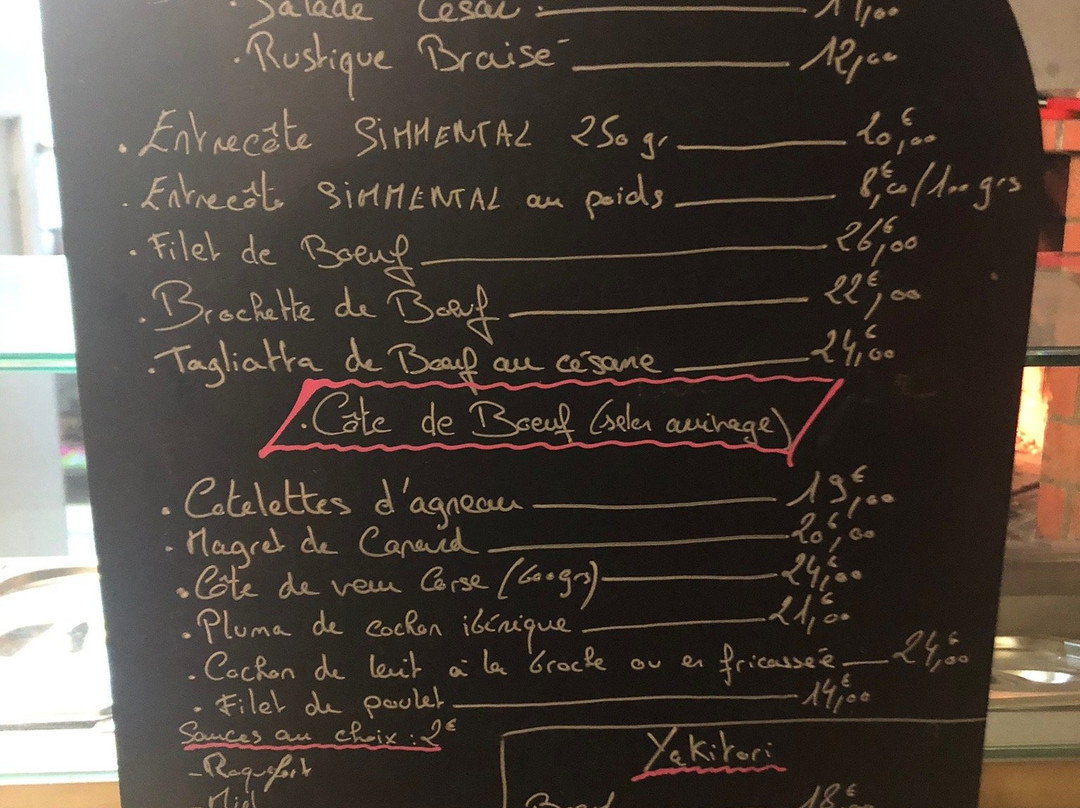 Salade César 11,00
. Rustique Braisé 12,00
. Entrecôte SIMMENTAL 250 gr. 20,00€
. Entrecôte SIMMENTAL au poids 8,00€/100 grs
. Filet de Boeuf 26,00€
. Brochette de Boeuf 22,00€
. Tagliatta de Boeuf au césame 24,00€
. Côte de Boeuf (selon arrivage)
. Cotelettes d'agneau 19,00€
. Magret de Canard 20,00€
. Côte de veau Corse (600grs) 24,00€
. Pluma de cochon ibérique 21,00€
. Cochon de lait à la broche ou en fricassée 24,00€
. Filet de poulet 14,00€
Sauces au choix : 2€
- Roquefort
- Miel
Yakitori
Boeuf 18€